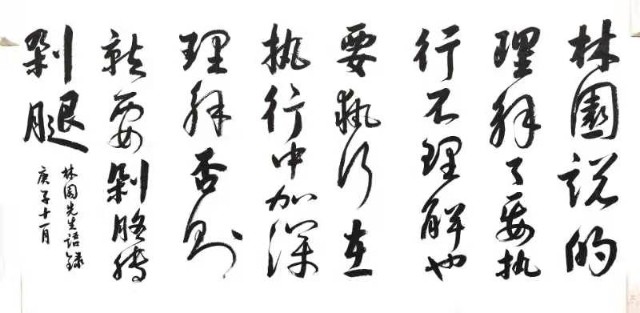 林園说的
理解了要执
行不理解也
要執行在
执行中加深
理解否则
就要剁胳膊
剁腿
林园先生语録
庚子十一月